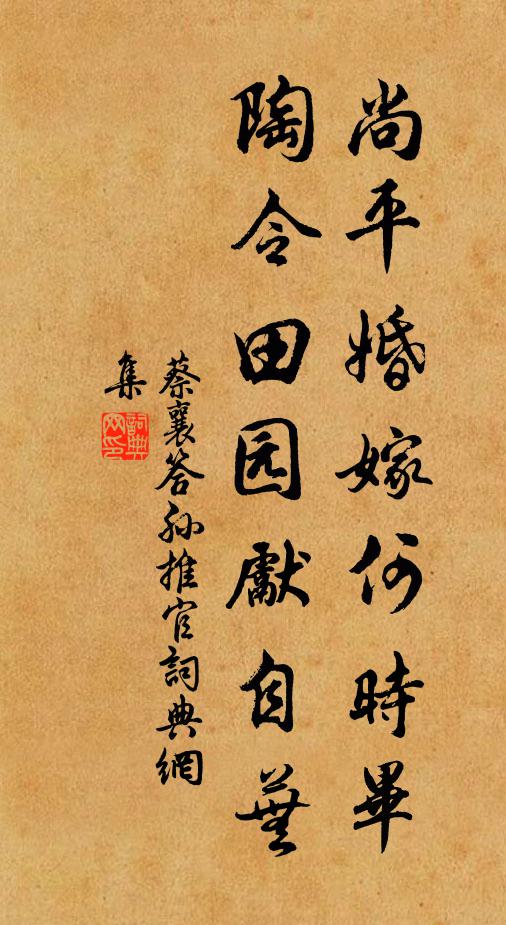 尚平婚嫁何時畢
陶令田园獻自蕪
蔡襄答孙推官詞典網
集
詞典
网印